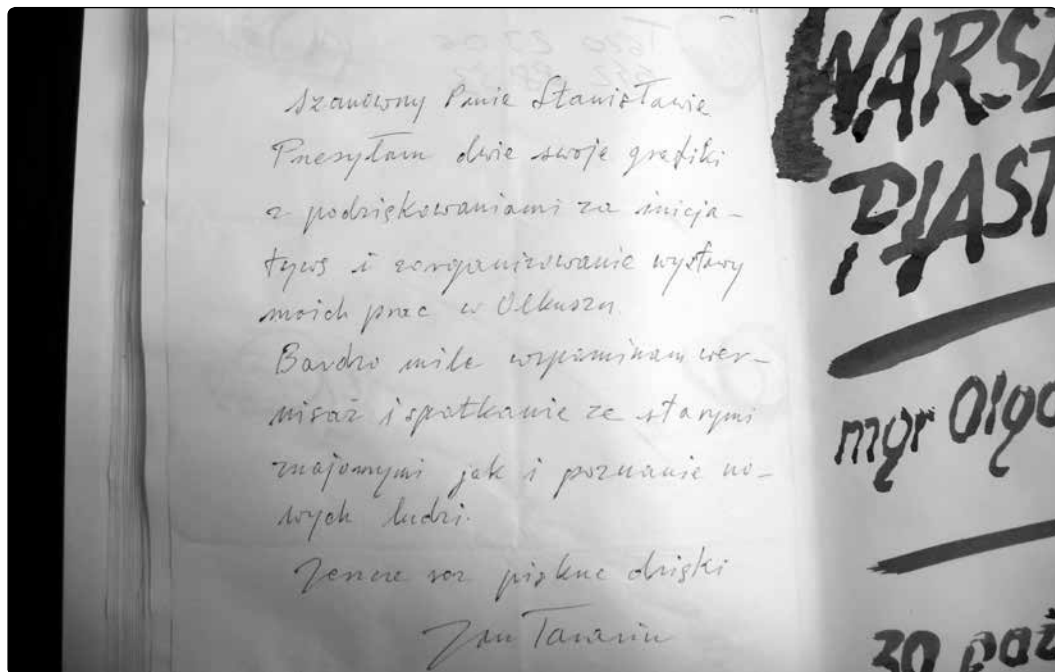 Szanowny Panie Stanisławie
Przesyłam dwie swoje grafiki
z podziękowaniami za inicja-
tywę i zorganizowanie wystawy
moich prac w Olkuszu.
Bardzo mile wspominam wer-
nisaż i spotkanie ze starymi
znajomymi jak i poznanie no-
wych ludzi.
Jeszcze raz piękne dzięki
Jan Tarasin
WARSZ
PLAST
mgr Olgo
30 paź